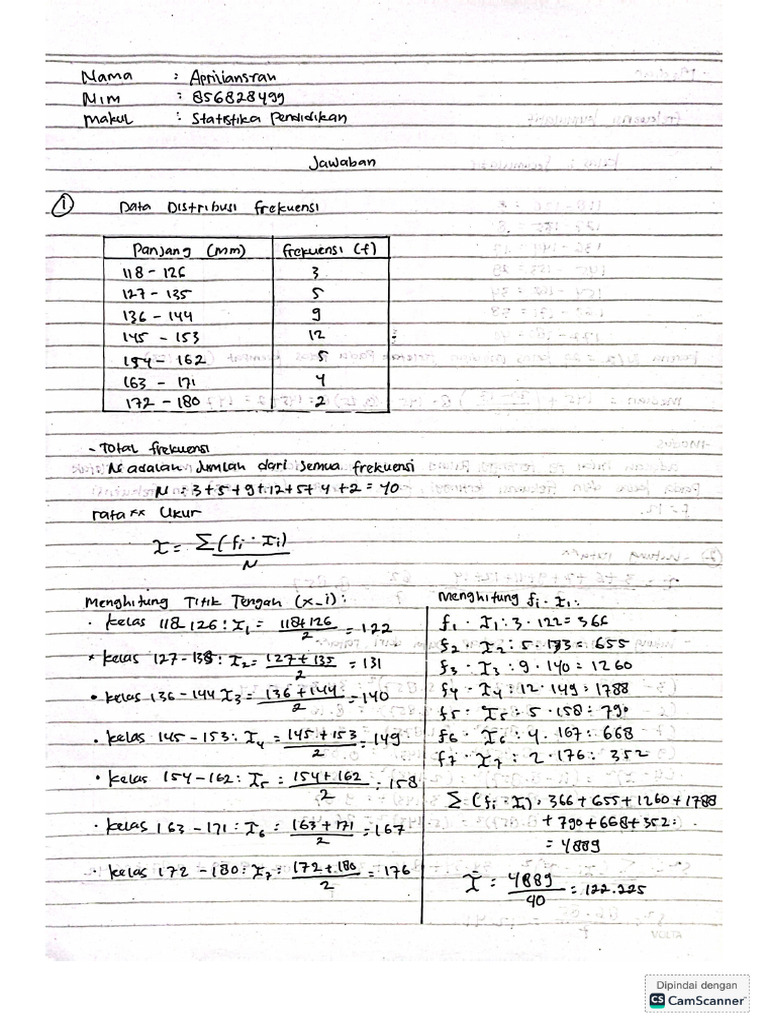 Nama : Apriliansyah
NIM : 856828499
Makul : Statistika Pendidikan
Jawaban
① Data Distribusi Frekuensi
Panjang (mm) Frekuensi (f)
118 - 126 3
127 - 135 5
136 - 144 9
145 - 153 12
154 - 162 5
163 - 171 4
172 - 180 2
- Total frekuensi
N adalah Jumlah dari semua frekuensi
N = 3+5+9+12+5+4+2 = 40
rata ** Ukur
x = Σ(fi · xi) / N
Menghitung Titik Tengah (x_i) :
• Kelas 118 126 : x1 = 118+126 / 2 = 122
* Kelas 127 - 135 : x2 = 127 + 135 / 2 = 131
• Kelas 136 - 144 x3 = 136 + 144 / 2 = 140
• Kelas 145 - 153 : x4 = 145 + 153 / 2 = 149
• Kelas 154 - 162 : x5 = 154 + 162 / 2 = 158
• Kelas 163 - 171 : x6 = 163 + 171 / 2 = 167
• Kelas 172 - 180 : x7 = 172 + 180 / 2 = 176
Menghitung fi · xi :
f1 · x1 : 3 · 122 = 366
f2 · x2 : 5 · 133 = 655
f3 · x3 : 9 · 140 = 1260
f4 · x4 : 12 · 149 = 1788
f5 · x5 : 5 · 158 : 790
f6 · x6 : 4 . 167 : 668
f7 · x7 : 2 · 176 : 352
Σ (fi · x) : 366 + 655 + 1260 + 1788
+ 790 + 668 + 352 :
= 4889
x̄ = 4889 / 40 = 122.225
VOLTA
Dipindai dengan
CS CamScanner